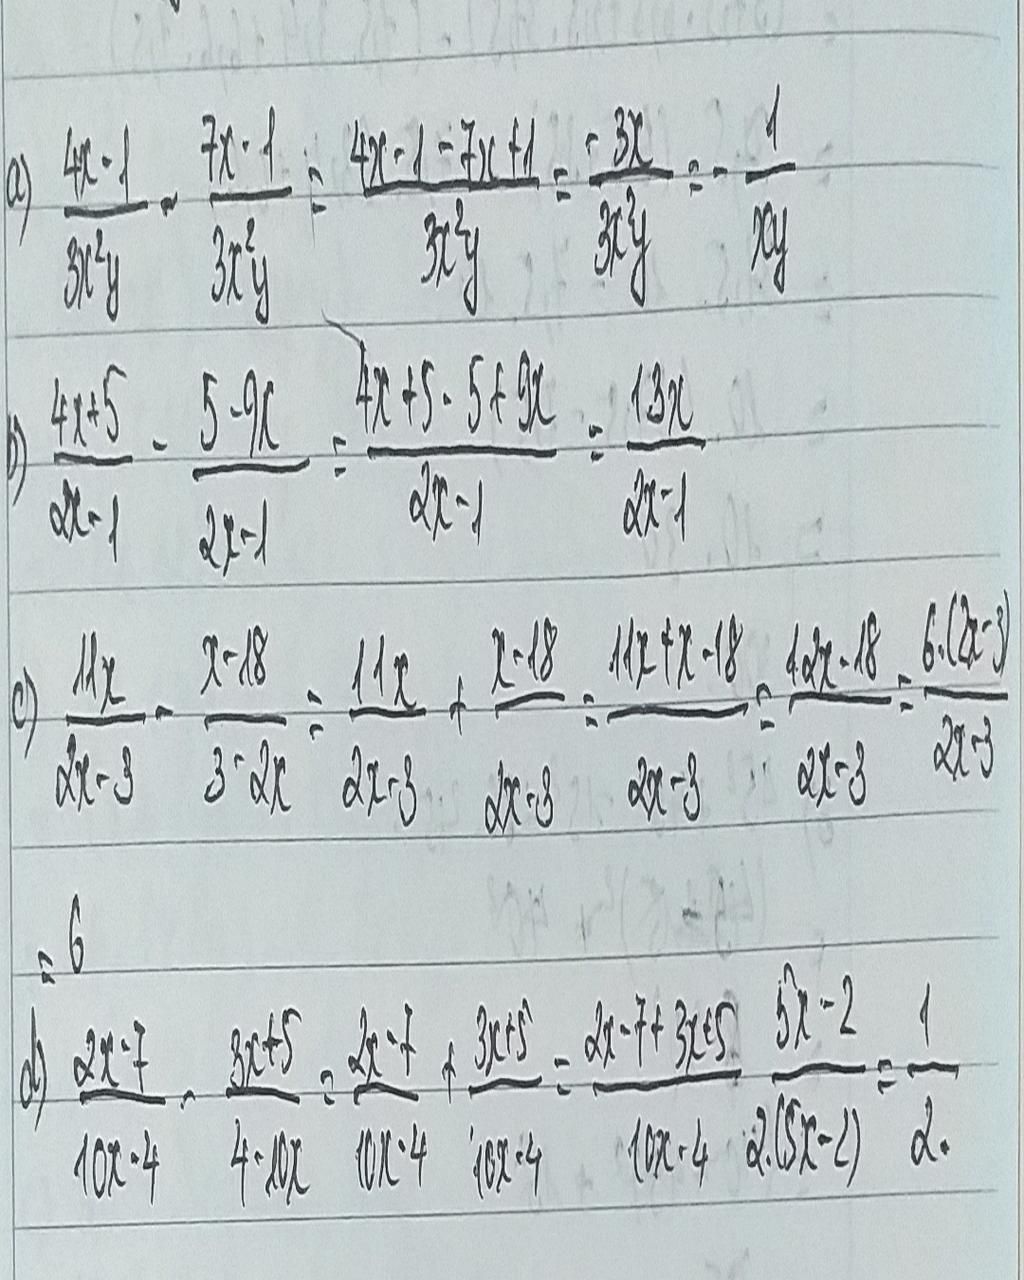 a) (4x-1)/(3x²y) - (7x-1)/(3x²y) = (4x-1-7x+1)/(3x²y) = (-3x)/(3x²y) = - 1/(xy)
b) (4x+5)/(2x-1) - (5-9x)/(2x-1) = (4x+5-5+9x)/(2x-1) = (13x)/(2x-1)
c) (11x)/(2x-3) - (x-18)/(3-2x) = (11x)/(2x-3) + (x-18)/(2x-3) = (11x+x-18)/(2x-3) = (12x-18)/(2x-3) = (6.(2x-3))/(2x-3)
= 6
d) (2x-7)/(10x-4) - (3x+5)/(4-10x) = (2x-7)/(10x-4) + (3x+5)/(10x-4) = (2x-7+3x+5)/(10x-4) (5x-2)/(2.(5x-2)) = 1/2.